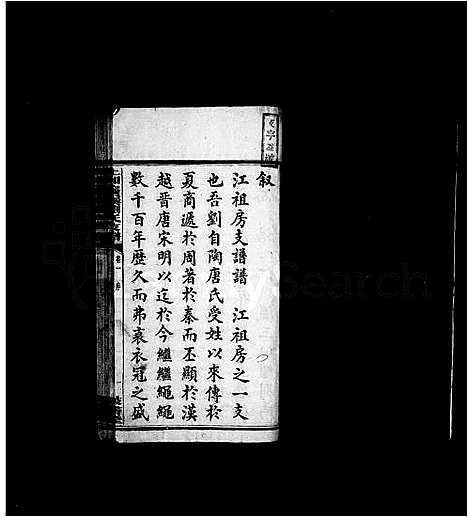 叙
江祖房支譜譜　江祖房之一支
也吾劉自陶唐氏受姓以來傳於
夏商遞於周著於秦而丕顯於漢
越晉唐宋明以迄於今繼繼繩繩
數千百年歷久而弗衰衣冠之盛
卷一